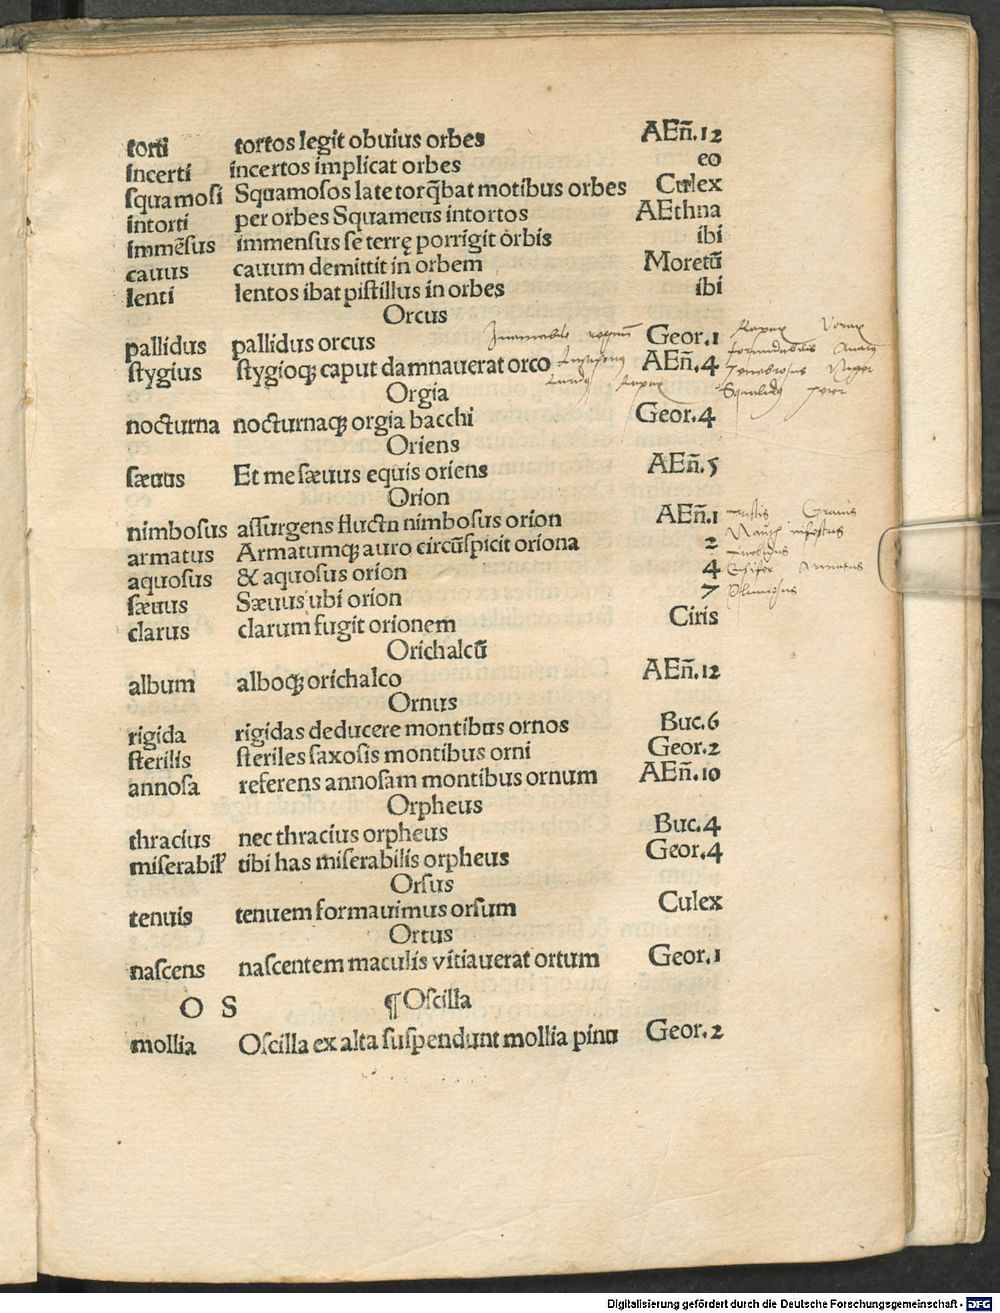 torti tortos legit obuius orbes AEn̄.12
incerti incertos implicat orbes eo
squamosi Squamosos late torq̄bat motibus orbes Culex
intorti per orbes Squameus intortos AEthna
immēsus immensus se terrę porrigit orbis ibi
cauus cauum demittit in orbem Moretū
lenti lentos ibat pistillus in orbes ibi
Orcus
pallidus pallidus orcus Geor.1
stygius stygioq; caput damnauerat orco AEn̄.4
Tenebrosus Niger
Squalidus
Orgia
nocturna nocturnaq; orgia bacchi Geor.4
Oriens
sæuus Et me sæuus equis oriens AEn̄.5
Orion
nimbosus assurgens fluctu nimbosus orion AEn̄.1
armatus Armatumq; auro circūspicit oriona 2
aquosus & aquosus orion 4
sæuus Sæuus ubi orion 7
clarus clarum fugit orionem Ciris
Tristis Grauis
infestus
Turbidus
Ensifer Armatus
Pluuiosus
Orichalcū
album alboq; orichalco AEn̄.12
Ornus
rigida rigidas deducere montibus ornos Buc.6
sterilis steriles saxosis montibus orni Geor.2
annosa referens annosam montibus ornum AEn̄.10
Orpheus
thracius nec thracius orpheus Buc.4
miserabil' tibi has miserabilis orpheus Geor.4
Orsus
tenuis tenuem formauimus orsum Culex
Ortus
nascens nascentem maculis vitiauerat ortum Geor.1
O S ¶Oscilla
mollia Oscilla ex alta suspendunt mollia pinu Geor.2
Digitalisierung gefördert durch die Deutsche Forschungsgemeinschaft - DFG